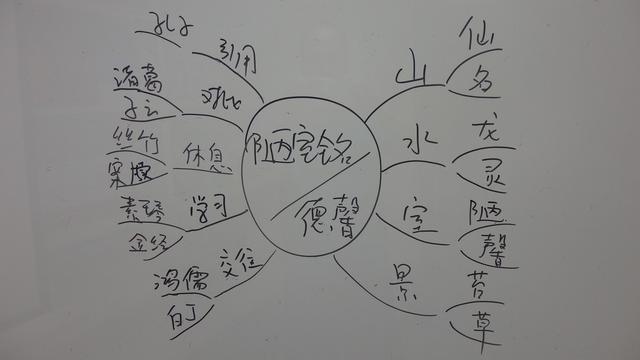 陋室铭
德馨
山
仙
名
水
龙
灵
室
陋
馨
景
苔
草
引用
孔子
对比
诸葛
子云
休息
丝竹
案牍
学习
素琴
金经
交往
鸿儒
白丁